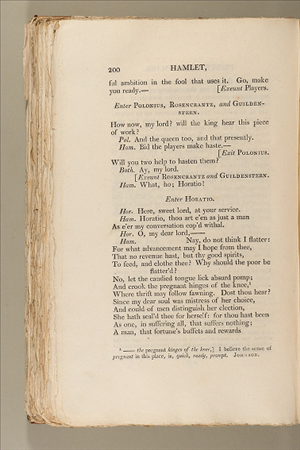 200 HAMLET,
ful ambition in the fool that uses it. Go, make
you ready.— [Exeunt Players.
Enter POLONIUS, ROSENCRANTZ, and GUILDEN-
STERN.
How now, my lord? will the king hear this piece
of work?
Pol. And the queen too, and that presently.
Ham. Bid the players make haste.—
[Exit POLONIUS.
Will you two help to hasten them?
Both. Ay, my lord.
[Exeunt ROSENCRANTZ and GUILDENSTERN.
Ham. What, ho; Horatio!
Enter HORATIO.
Hor. Here, sweet lord, at your service.
Ham. Horatio, thou art e'en as just a man
As e'er my conversation cop'd withal.
Hor. O, my dear lord,—
Ham. Nay, do not think I flatter:
For what advancement may I hope from thee,
That no revenue hast, but thy good spirits,
To feed, and clothe thee? Why should the poor be
flatter'd?
No, let the candied tongue lick absurd pomp;
And crook the pregnant hinges of the knee,⁸
Where thrift may follow fawning. Dost thou hear?
Since my dear soul was mistress of her choice,
And could of men distinguish her election,
She hath seal'd thee for herself: for thou hast been
As one, in suffering all, that suffers nothing;
A man, that fortune's buffets and rewards
⁸ —— the pregnant hinges of the knee,] I believe the sense of
pregnant in this place, is, quick, ready, prompt. JOHNSON.